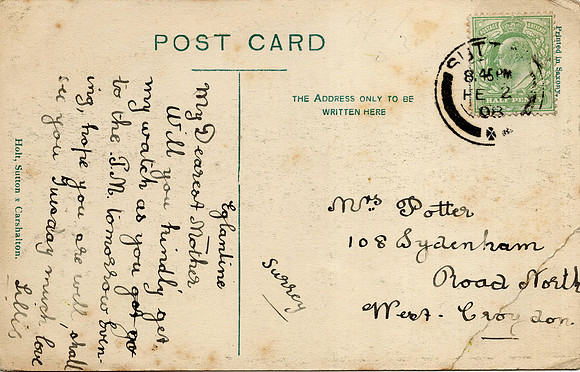 POST CARD
THE ADDRESS ONLY TO BE
WRITTEN HERE
Printed in Saxony.
SUTT
8.45 PM
FE 2
08
HALF PE
Eglantine
My Dearest Mother
Will you kindly get
my watch as you got go
to the P.M. tomorrow Even-
ing, hope you are well, shall
see you Tuesday much love
Lillis
Holt, Sutton & Carshalton.
Mrs Potter
108 Sydenham
Road North
West-Croydon
Surrey